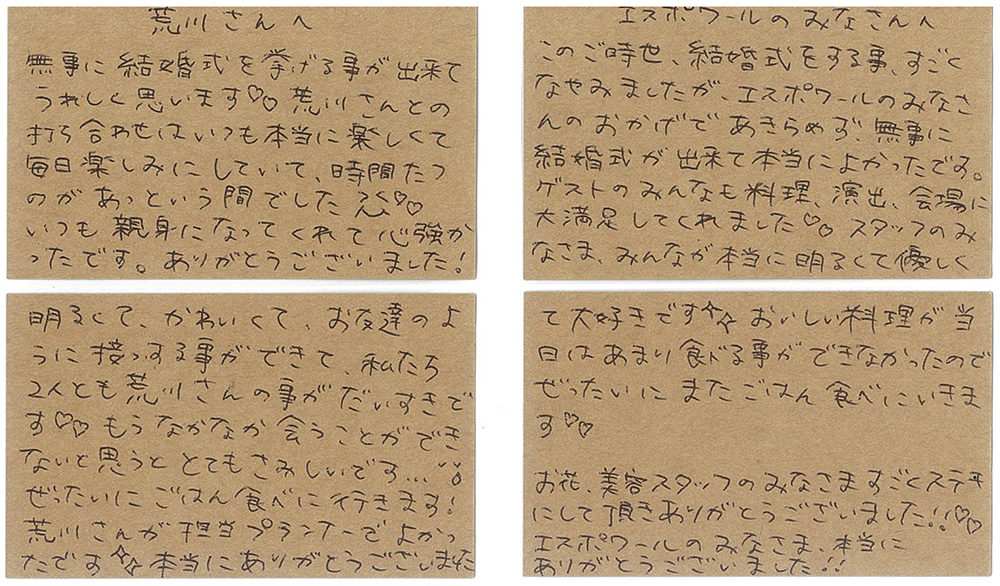 荒川さんへ
無事に結婚式を挙げる事が出来て
うれしく思います♡♡ 荒川さんとの
打ち合わせはいつも本当に楽しくて
毎日楽しみにしていて、時間たつ
のがあっという間でした♡♡
いつも親身になってくれて心強か
ったです。ありがとうございました!
明るくて、かわいくて、お友達のよ
うに接っする事ができて、私たち
2人とも荒川さんの事がだいすきで
す♡♡ もうなかなか会うことができ
ないと思うと とてもさみしいです...
ぜったいに ごはん食べに行きます!
荒川さんが担当プランナーでよかっ
たです☆☆ 本当にありがとうございました
エスポワールのみなさんへ
このご時世、結婚式をする事、すごく
なやみましたが、エスポワールのみなさ
んのおかげであきらめず、無事に
結婚式が出来て本当によかったです。
ゲストのみんなも料理、演出、会場に
大満足してくれました♡♡ スタッフのみ
なさま、みんなが本当に明るくて優しく
て大好きです☆☆ おいしい料理が当
日はあまり食べる事ができなかったので
ぜったいに またごはん食べにいきま
す♡♡
お花、美容スタッフのみなさますごくステキ
にして頂きありがとうございました!!♡♡
エスポワールのみなさま、本当に
ありがとうございました!!